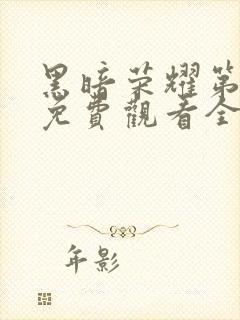 黑暗荣耀第
免費觀看全
年影